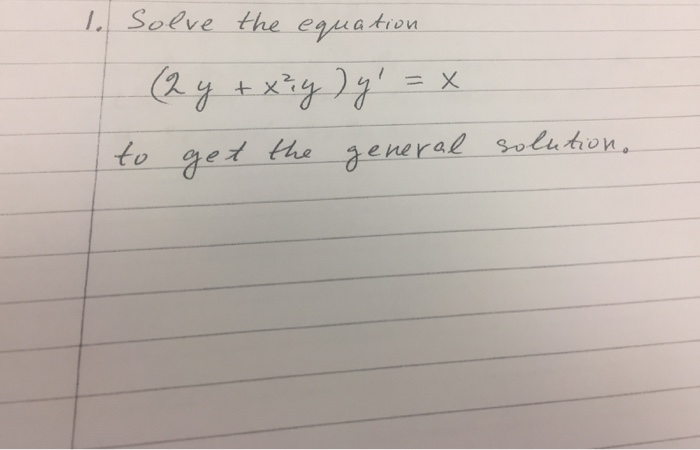 1. Solve the equation
(2y + x²·y)y' = x
to get the general solution.